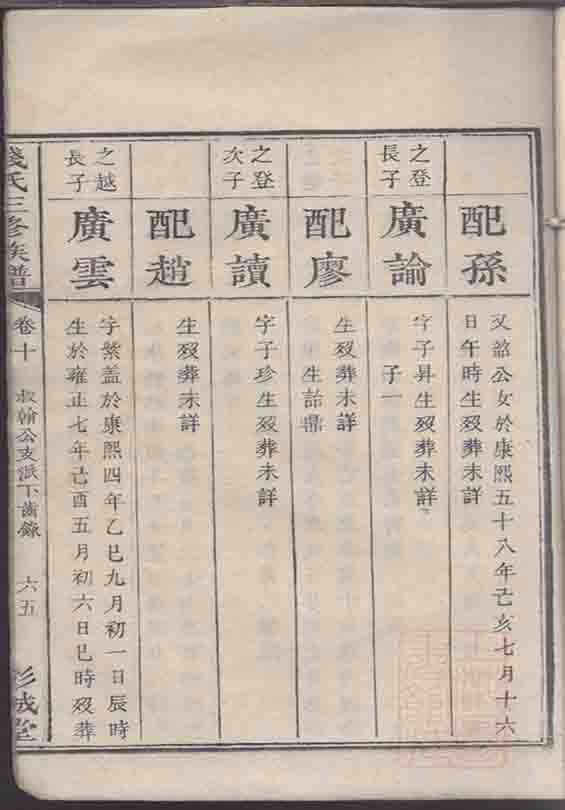 配孫
文韶公女於康熙五十八年己亥七月十六
日午時生歿葬未詳
之登
長子
廣諭
字子昇生歿葬未詳
子一
配廖
生歿葬未詳
生喆鼎
之登
次子
廣讀
字子珍生歿葬未詳
配趙
生歿葬未詳
之越
長子
廣雲
字紫蓋於康熙四年乙巳九月初一日辰時
生於雍正七年己酉五月初六日巳時歿葬
錢氏三修族譜
卷十
叔翰公支派下齒錄
六五
彭城堂